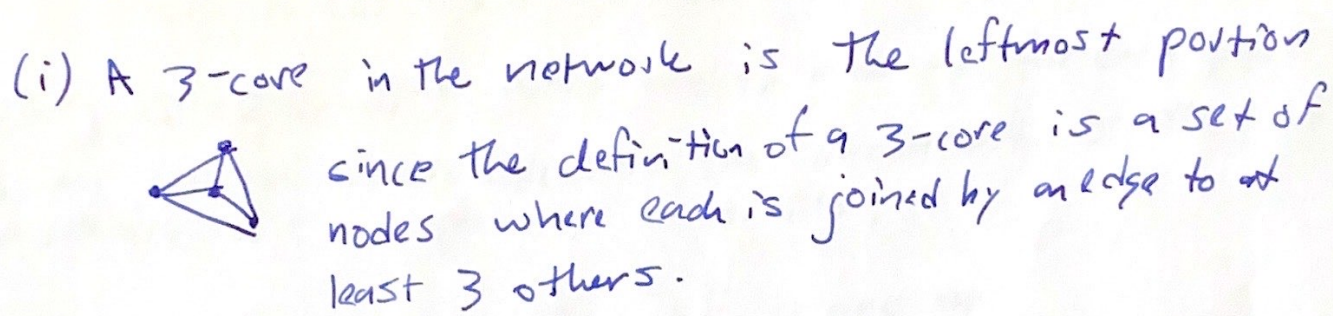 (i) A 3-core in the network is the leftmost portion
since the definition of a 3-core is a set of
nodes where each is joined by an edge to at
least 3 others.